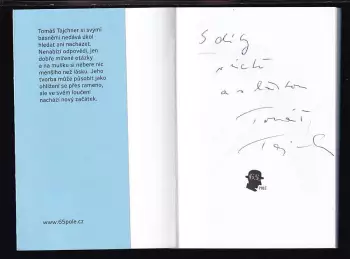 Tomáš Tajchner si svými
básněmi nedává úkol
hledat ani nacházet.
Nenabízí odpovědi, jen
dobře mířené otázky
a na mušku si nebere nic
menšího než lásku. Jeho
tvorba může působit jako
ohlížení se přes rameno,
ale ve svém loučení
nachází nový začátek.
www.65pole.cz
S díky
a s láskou
Tomáš
65